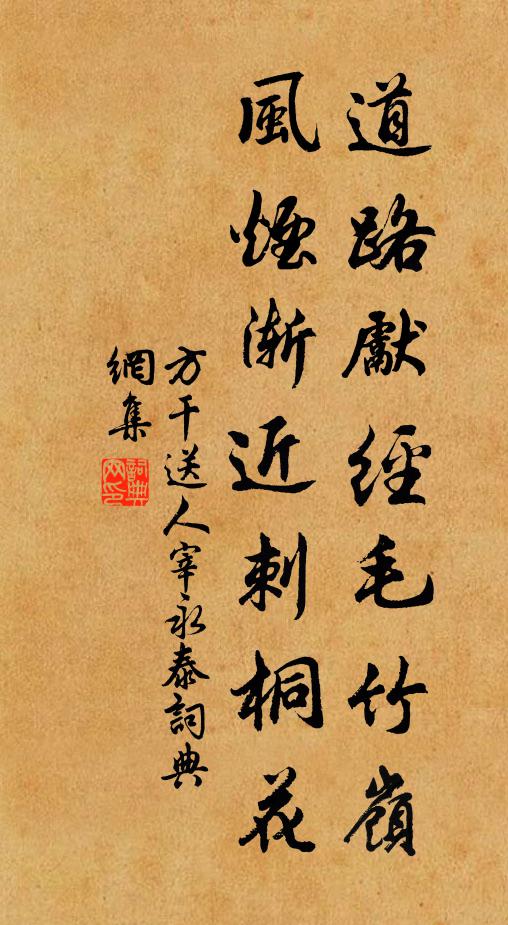 道路獻經毛竹嶺
風煙漸近刺桐花
方干送人宰永泰詞典
網集
詞典
网印